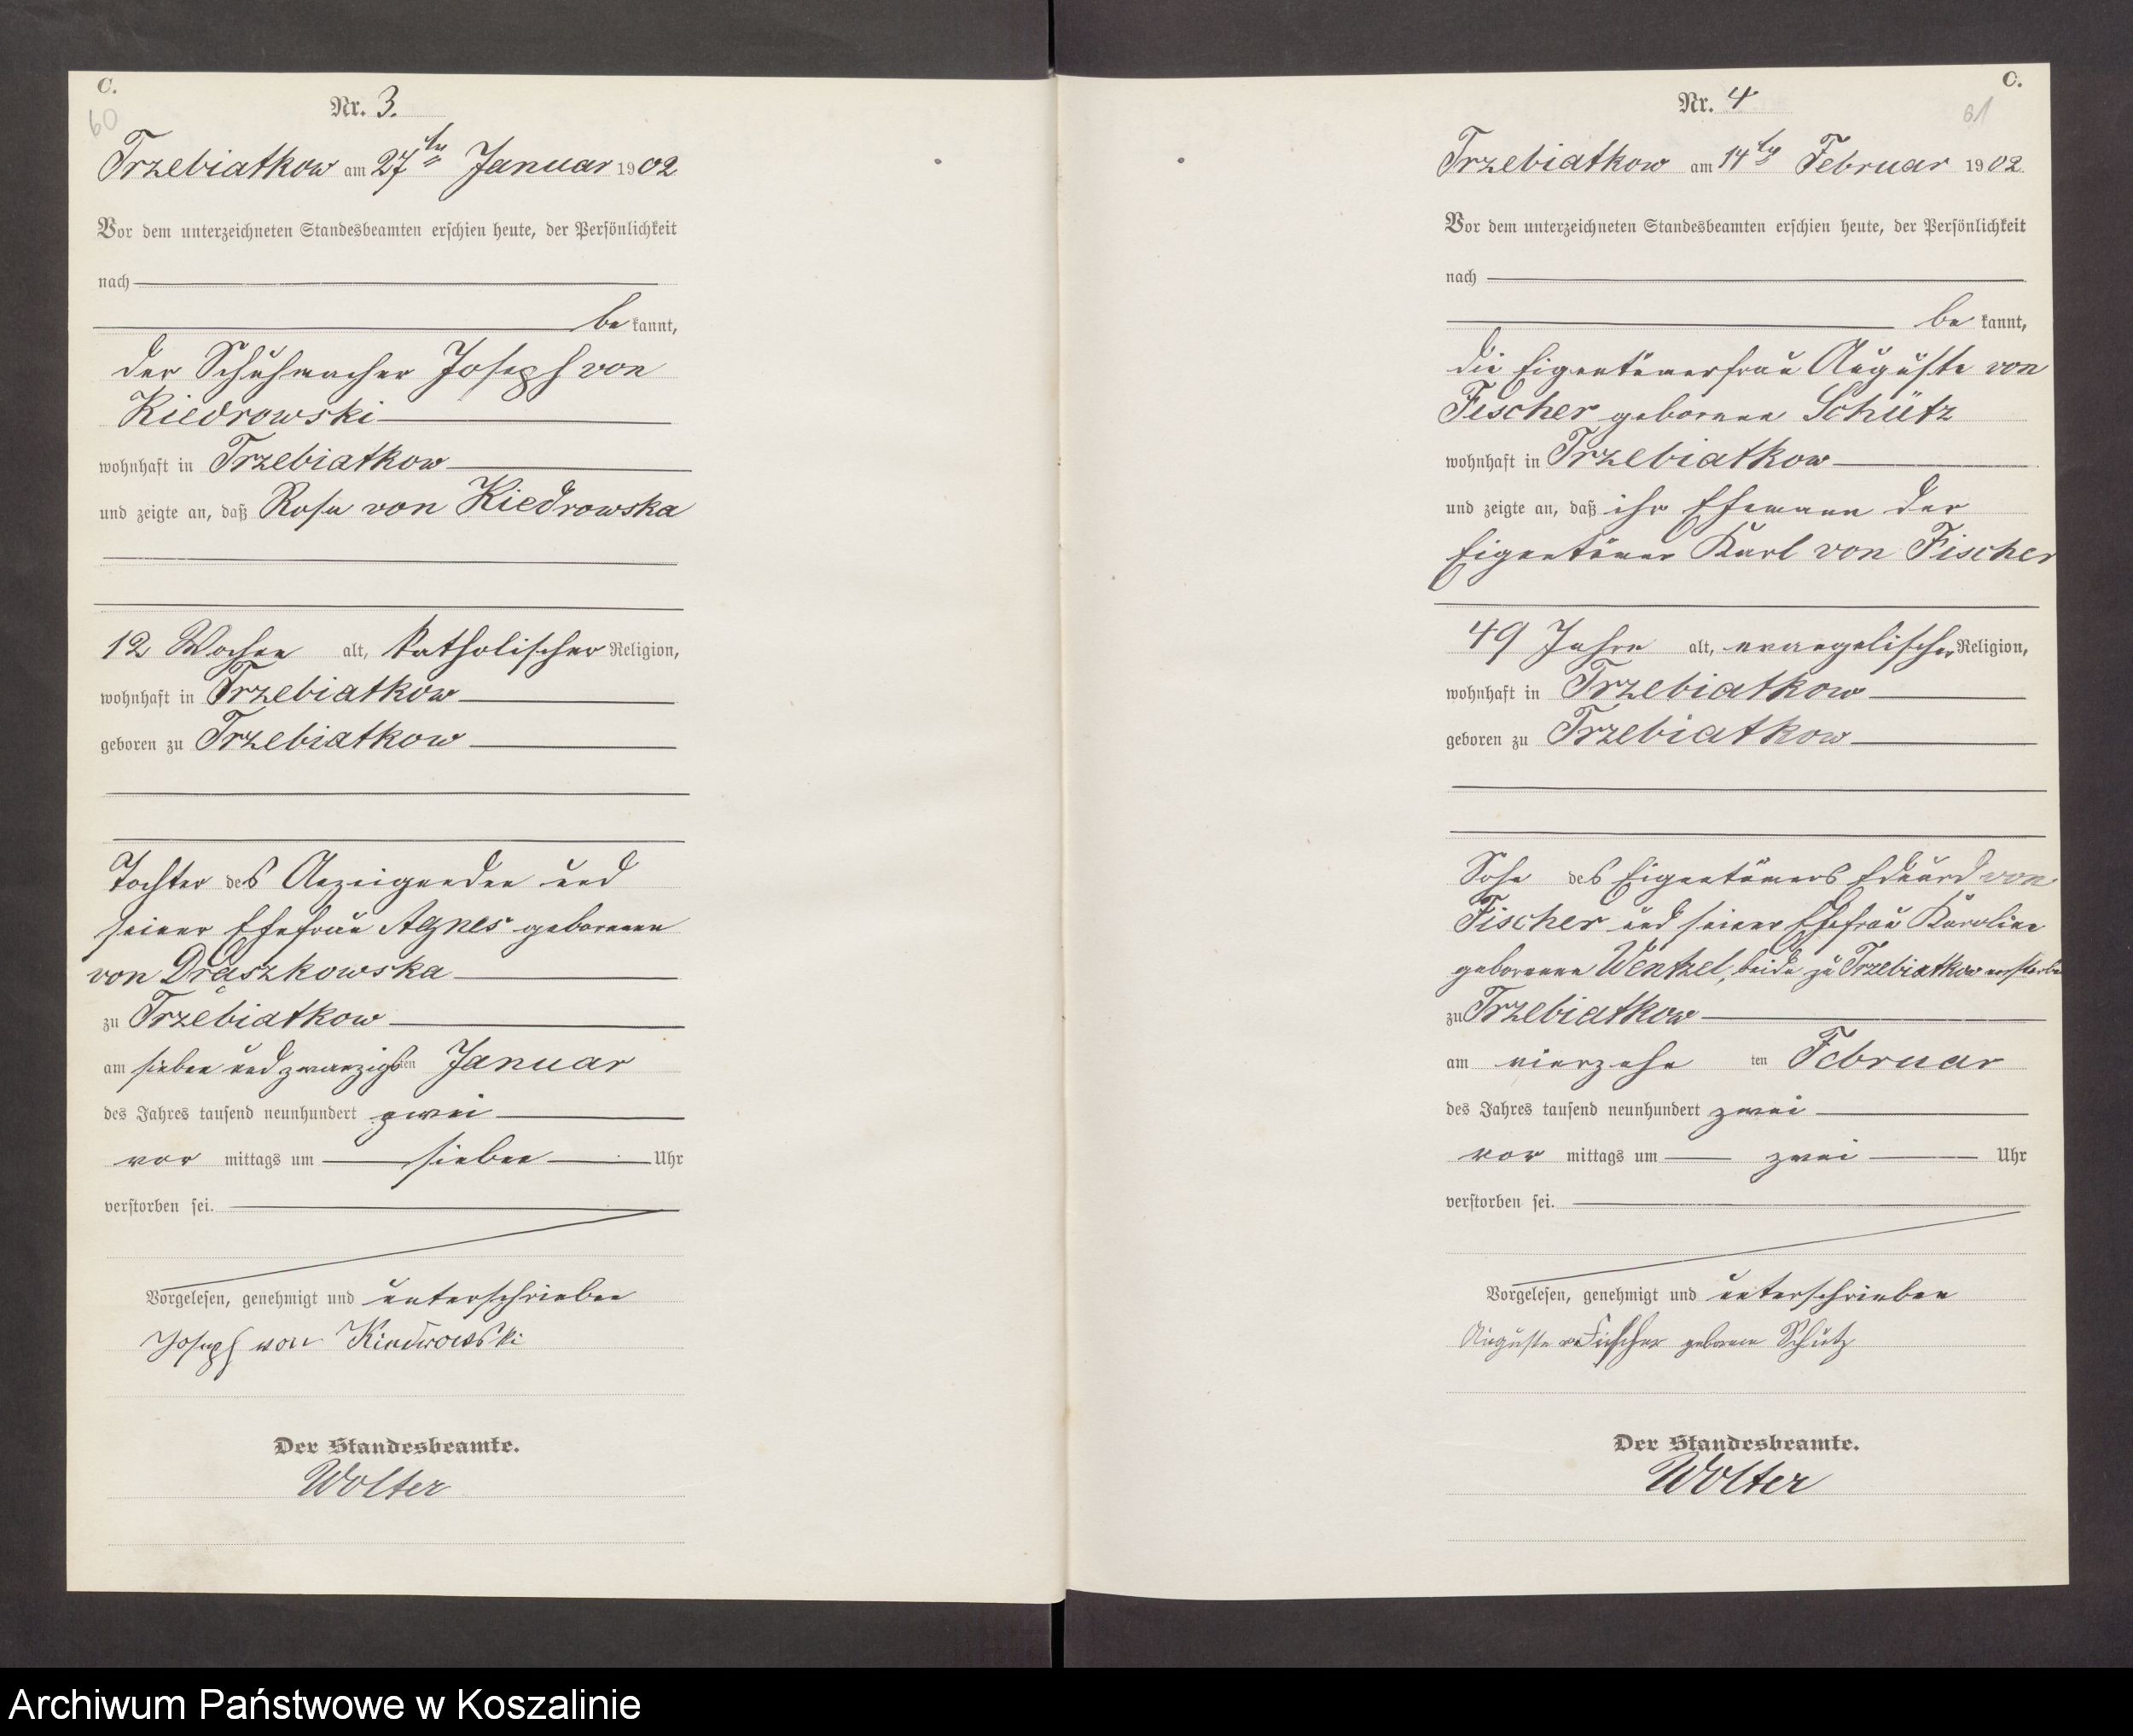 C.
60
Nr. 3.
Trzebiatkow am 27ten Januar 1902
Vor dem unterzeichneten Standesbeamten erschien heute, der Persönlichkeit
nach
be kannt,
der Schuhmacher Joseph von
Kiedrowski
wohnhaft in Trzebiatkow
und zeigte an, daß Rosa von Kiedrowska
12 Wochen alt, katholischer Religion,
wohnhaft in Trzebiatkow
geboren zu Trzebiatkow
Tochter des Anzeigenden und
seiner Ehefrau Agnes geborenen
von Draszkowska
zu Trzebiatkow
am sieben und zwanzigsten Januar
des Jahres tausend neunhundert zwei
vor mittags um sieben Uhr
verstorben sei.
Vorgelesen, genehmigt und unterschrieben
Joseph von Kiedrowski
Der Standesbeamte.
Wolter
C.
61
Nr. 4
Trzebiatkow am 14ten Februar 1902
Vor dem unterzeichneten Standesbeamten erschien heute, der Persönlichkeit
nach
be kannt,
die Eigentümerfrau Auguste von
Fischer geborene Schütz
wohnhaft in Trzebiatkow
und zeigte an, daß ihr Ehemann der
Eigentümer Karl von Fischer
49 Jahre alt, evangelischer Religion,
wohnhaft in Trzebiatkow
geboren zu Trzebiatkow
Sohn des Eigentümers Eduard von
Fischer und seiner Ehefrau Karoline
geborenen Wentzel, beide zu Trzebiatkow verstorben
zu Trzebiatkow
am vierzehn ten Februar
des Jahres tausend neunhundert zwei
vor mittags um zwei Uhr
verstorben sei.
Vorgelesen, genehmigt und unterschrieben
Auguste v. Fischer geborene Schütz
Der Standesbeamte.
Wolter
Archiwum Państwowe w Koszalinie